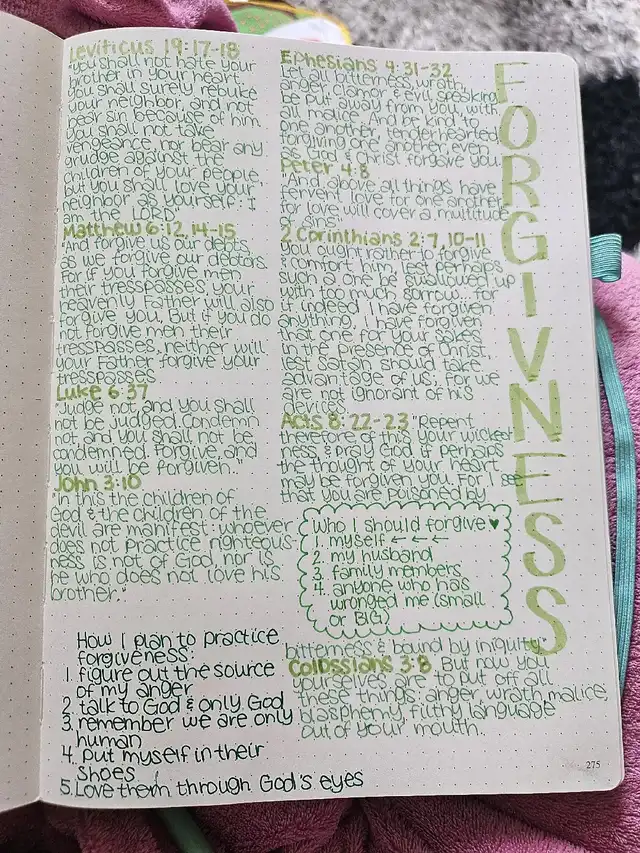 Leviticus 19:17-18
"you shall not hate your
brother in your heart.
you shall surely rebuke
your neighbor, and not
bear sin because of him.
you shall not take
vengeance, nor bear any
grudge against the
children of your people,
but you shall love your
neighbor as yourself: I
am the LORD.
Matthew 6:12, 14-15
"And forgive us our debts,
as we forgive our debtors.
For if you forgive men
their tresspasses, your
heavenly Father will also
forgive you. But if you do
not forgive men their
tresspasses, neither will
your Father forgive your
trespasses
Luke 6:37
"Judge not, and you shall
not be judged. Condemn
not, and you shall not be
condemned. Forgive, and
you will be forgiven."
John 3:10
"In this the children of
God & the children of the
devil are manifest: whoever
does not practice righteous-
ness is not of God, nor is
he who does not love his
brother."
How I plan to practice
forgiveness:
1. figure out the source
of my anger
2. talk to God & only God
3. remember we are only
human
4. put myself in their
shoes
5. Love them through God's eyes
Ephesians 4:31-32
Let all bitterness, wrath,
anger, clamor & evil speaking
be put away from you, with
all malice. And be kind to
one another, tenderhearted,
forgiving one another, even
as God & Christ forgave you.
Peter 4:8
"And above all things have
fervent love for one another,
for love will cover a multitude
of sins."
2 Corinthians 2:7, 10-11
you ought rather to forgive
& comfort him, lest perhaps
such a one be swallowed up
with too much sorrow...for
if indeed I have forgiven
anything, I have forgiven
that one for your sakes
in the presence of Christ,
lest Satan should take
advantage of us; for we
are not ignorant of his
Acts 8:22-23 "Repent
therefore of this your wicked
ness & pray God if perhaps
the thought of your heart
may be forgiven you. For I see
that you are poisoned by
Who I should forgive ♥
1. myself ← ← ←
2. my husband
3. family members
4. anyone who has
wronged me (small
or BIG)
bitterness & bound by iniquity."
Colossians 3:8 But now you
yourselves are to put off all
these things: anger, wrath, malice,
blasphemy, filthy language
out of your mouth.
FORGIVNESS
275